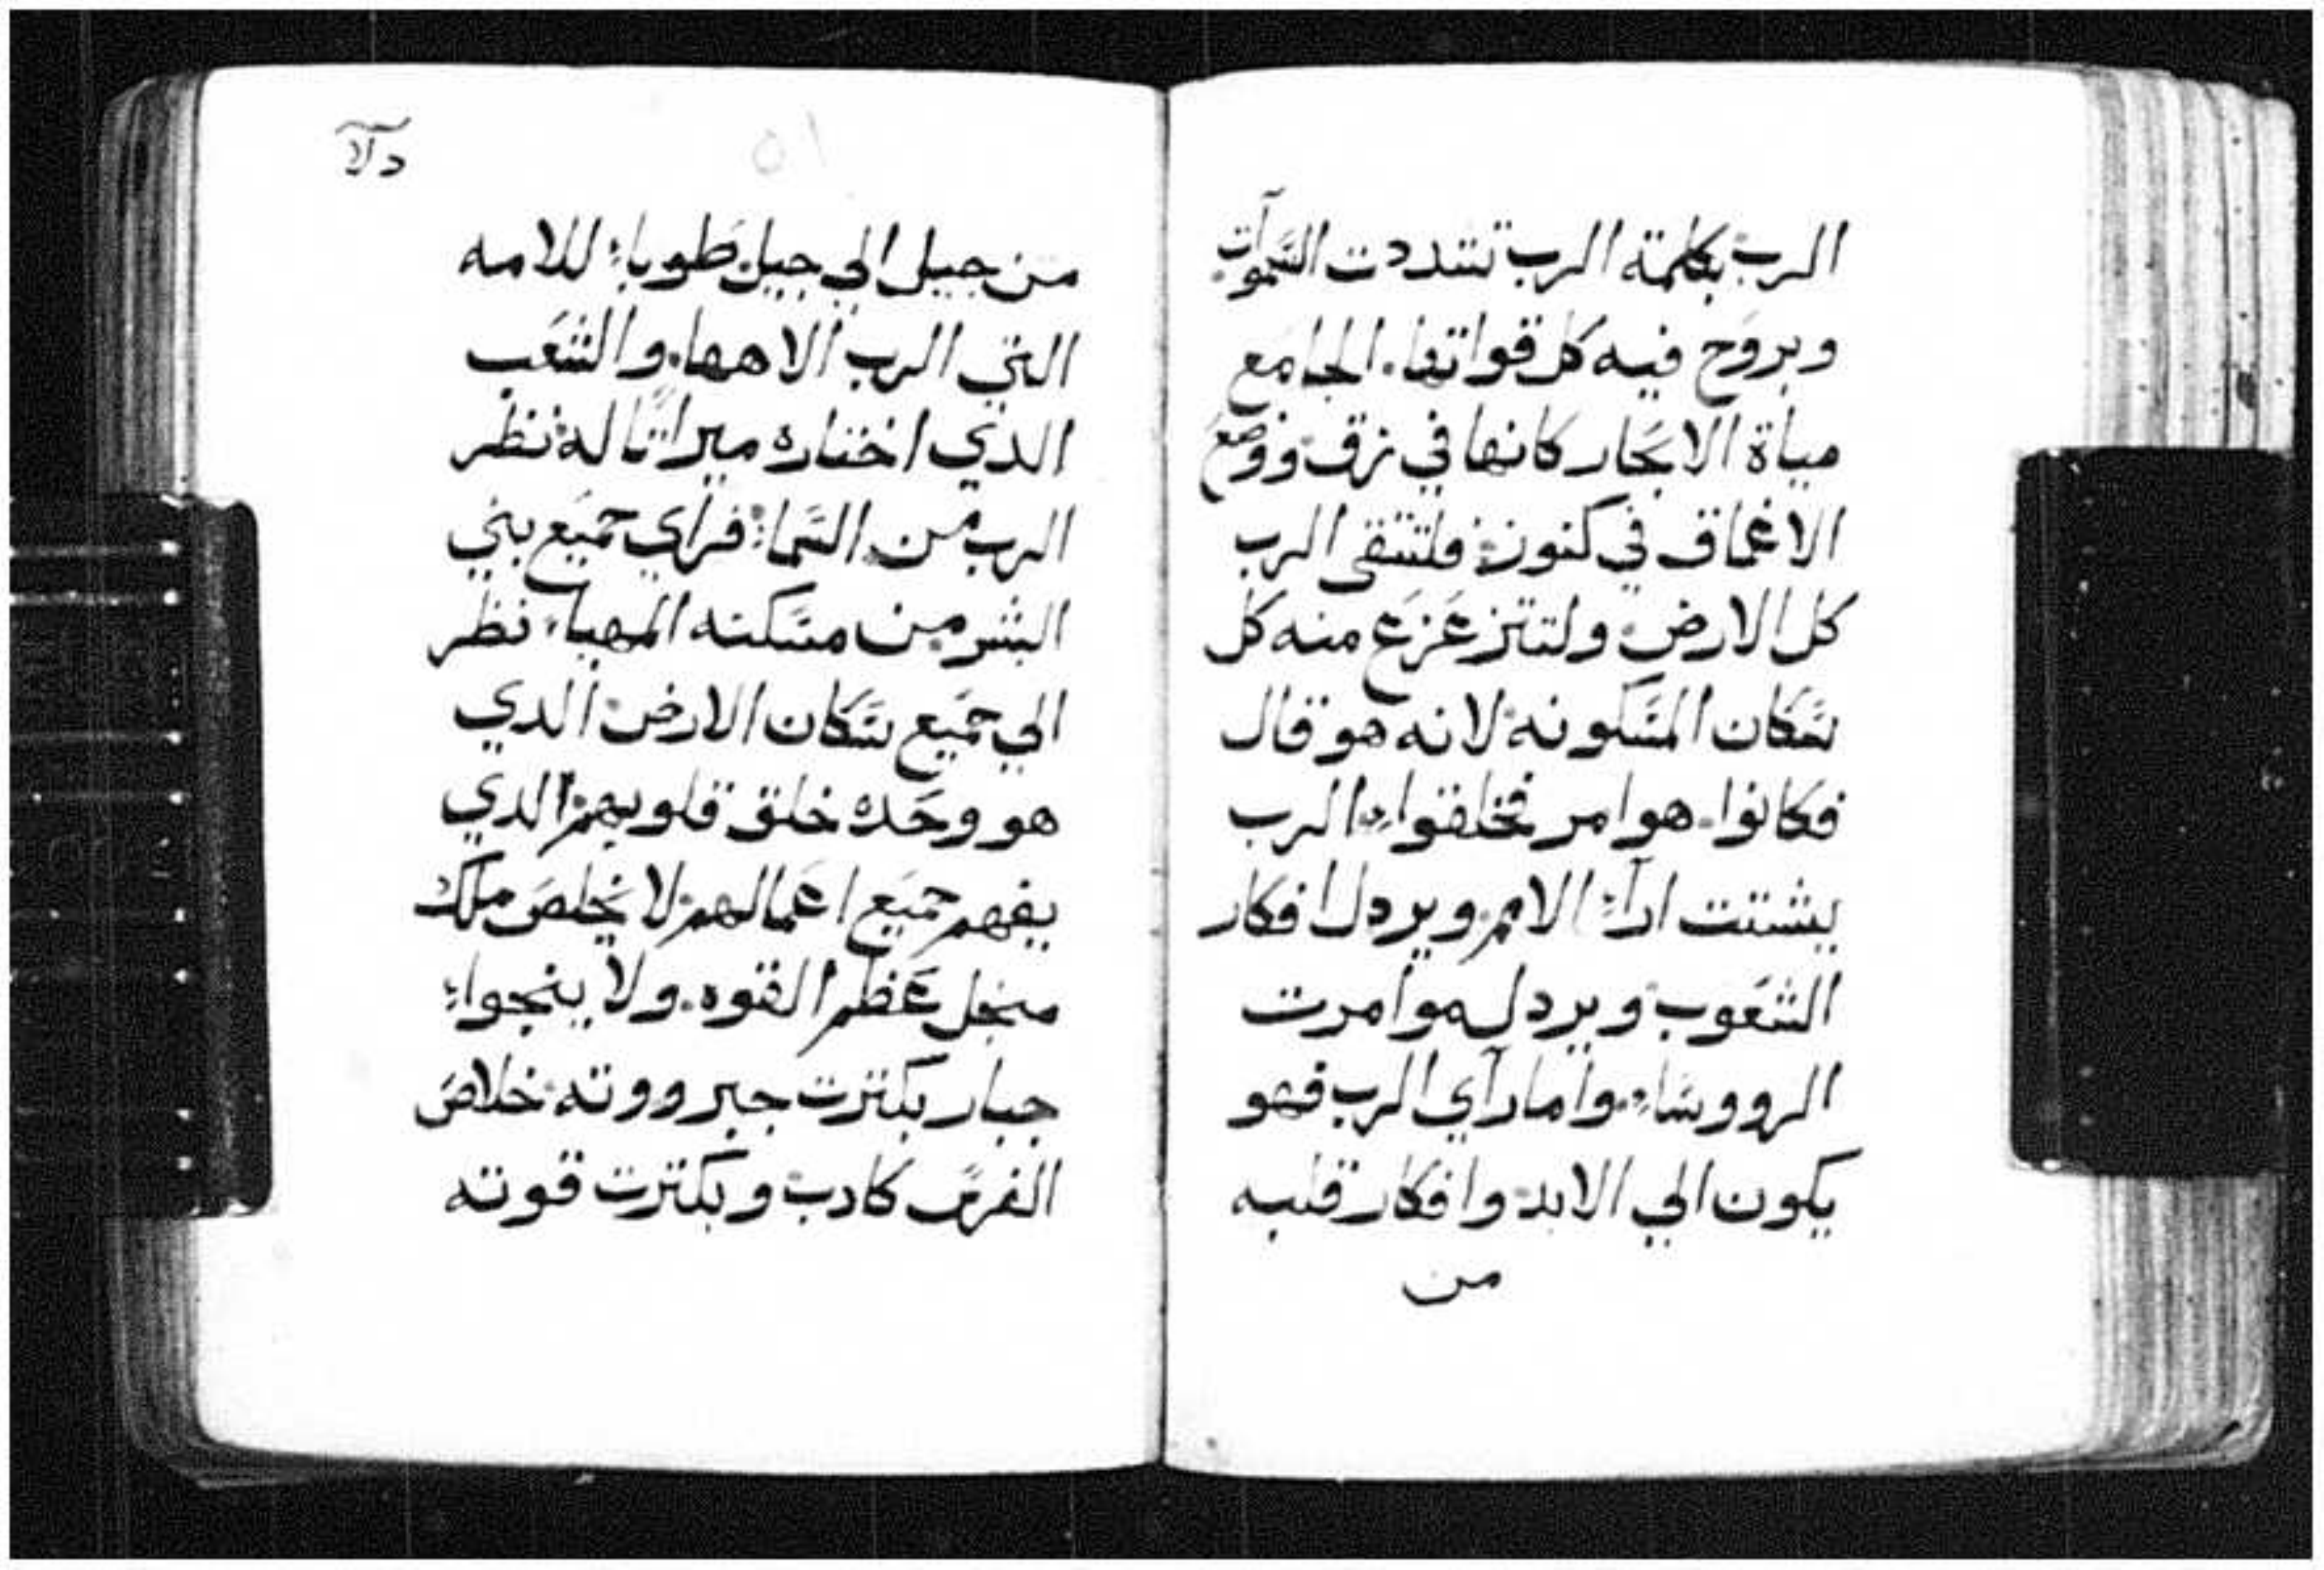 الرب بكلمة الرب تشددت السموات
وبروح فيه كل قواتها. الجامع
مياة الابحار كانها في زق ووضع
الاعماق في كنوز فلتتقى الرب
كل الارض ولتتزعزع منه كل
سكان المسكونه لانه هو قال
فكانوا. هو امر فخلقوا الرب
يشتت اراء الامم ويردل افكار
الشعوب ويردل موامرت
الرووساء. واما رآي الرب فهو
يكون الي الابد وافكار قلبه
من
من جيل الي جيل طوباء للامه
التي الرب الاهها. والشعب
الدي اختاره ميراتا له نظر
الرب من السماء فراي جميع بني
البشر من مسكنه المهيا نظر
الي جميع سكان الارض الدي
هو وحده خلق قلوبهم الدي
يفهم جميع اعمالهم لا يخلص ملك
منجل عظم القوه. ولا ينجوا
جبار بكترت جبرووته خلاص
الفرس كادب وبكترت قوته